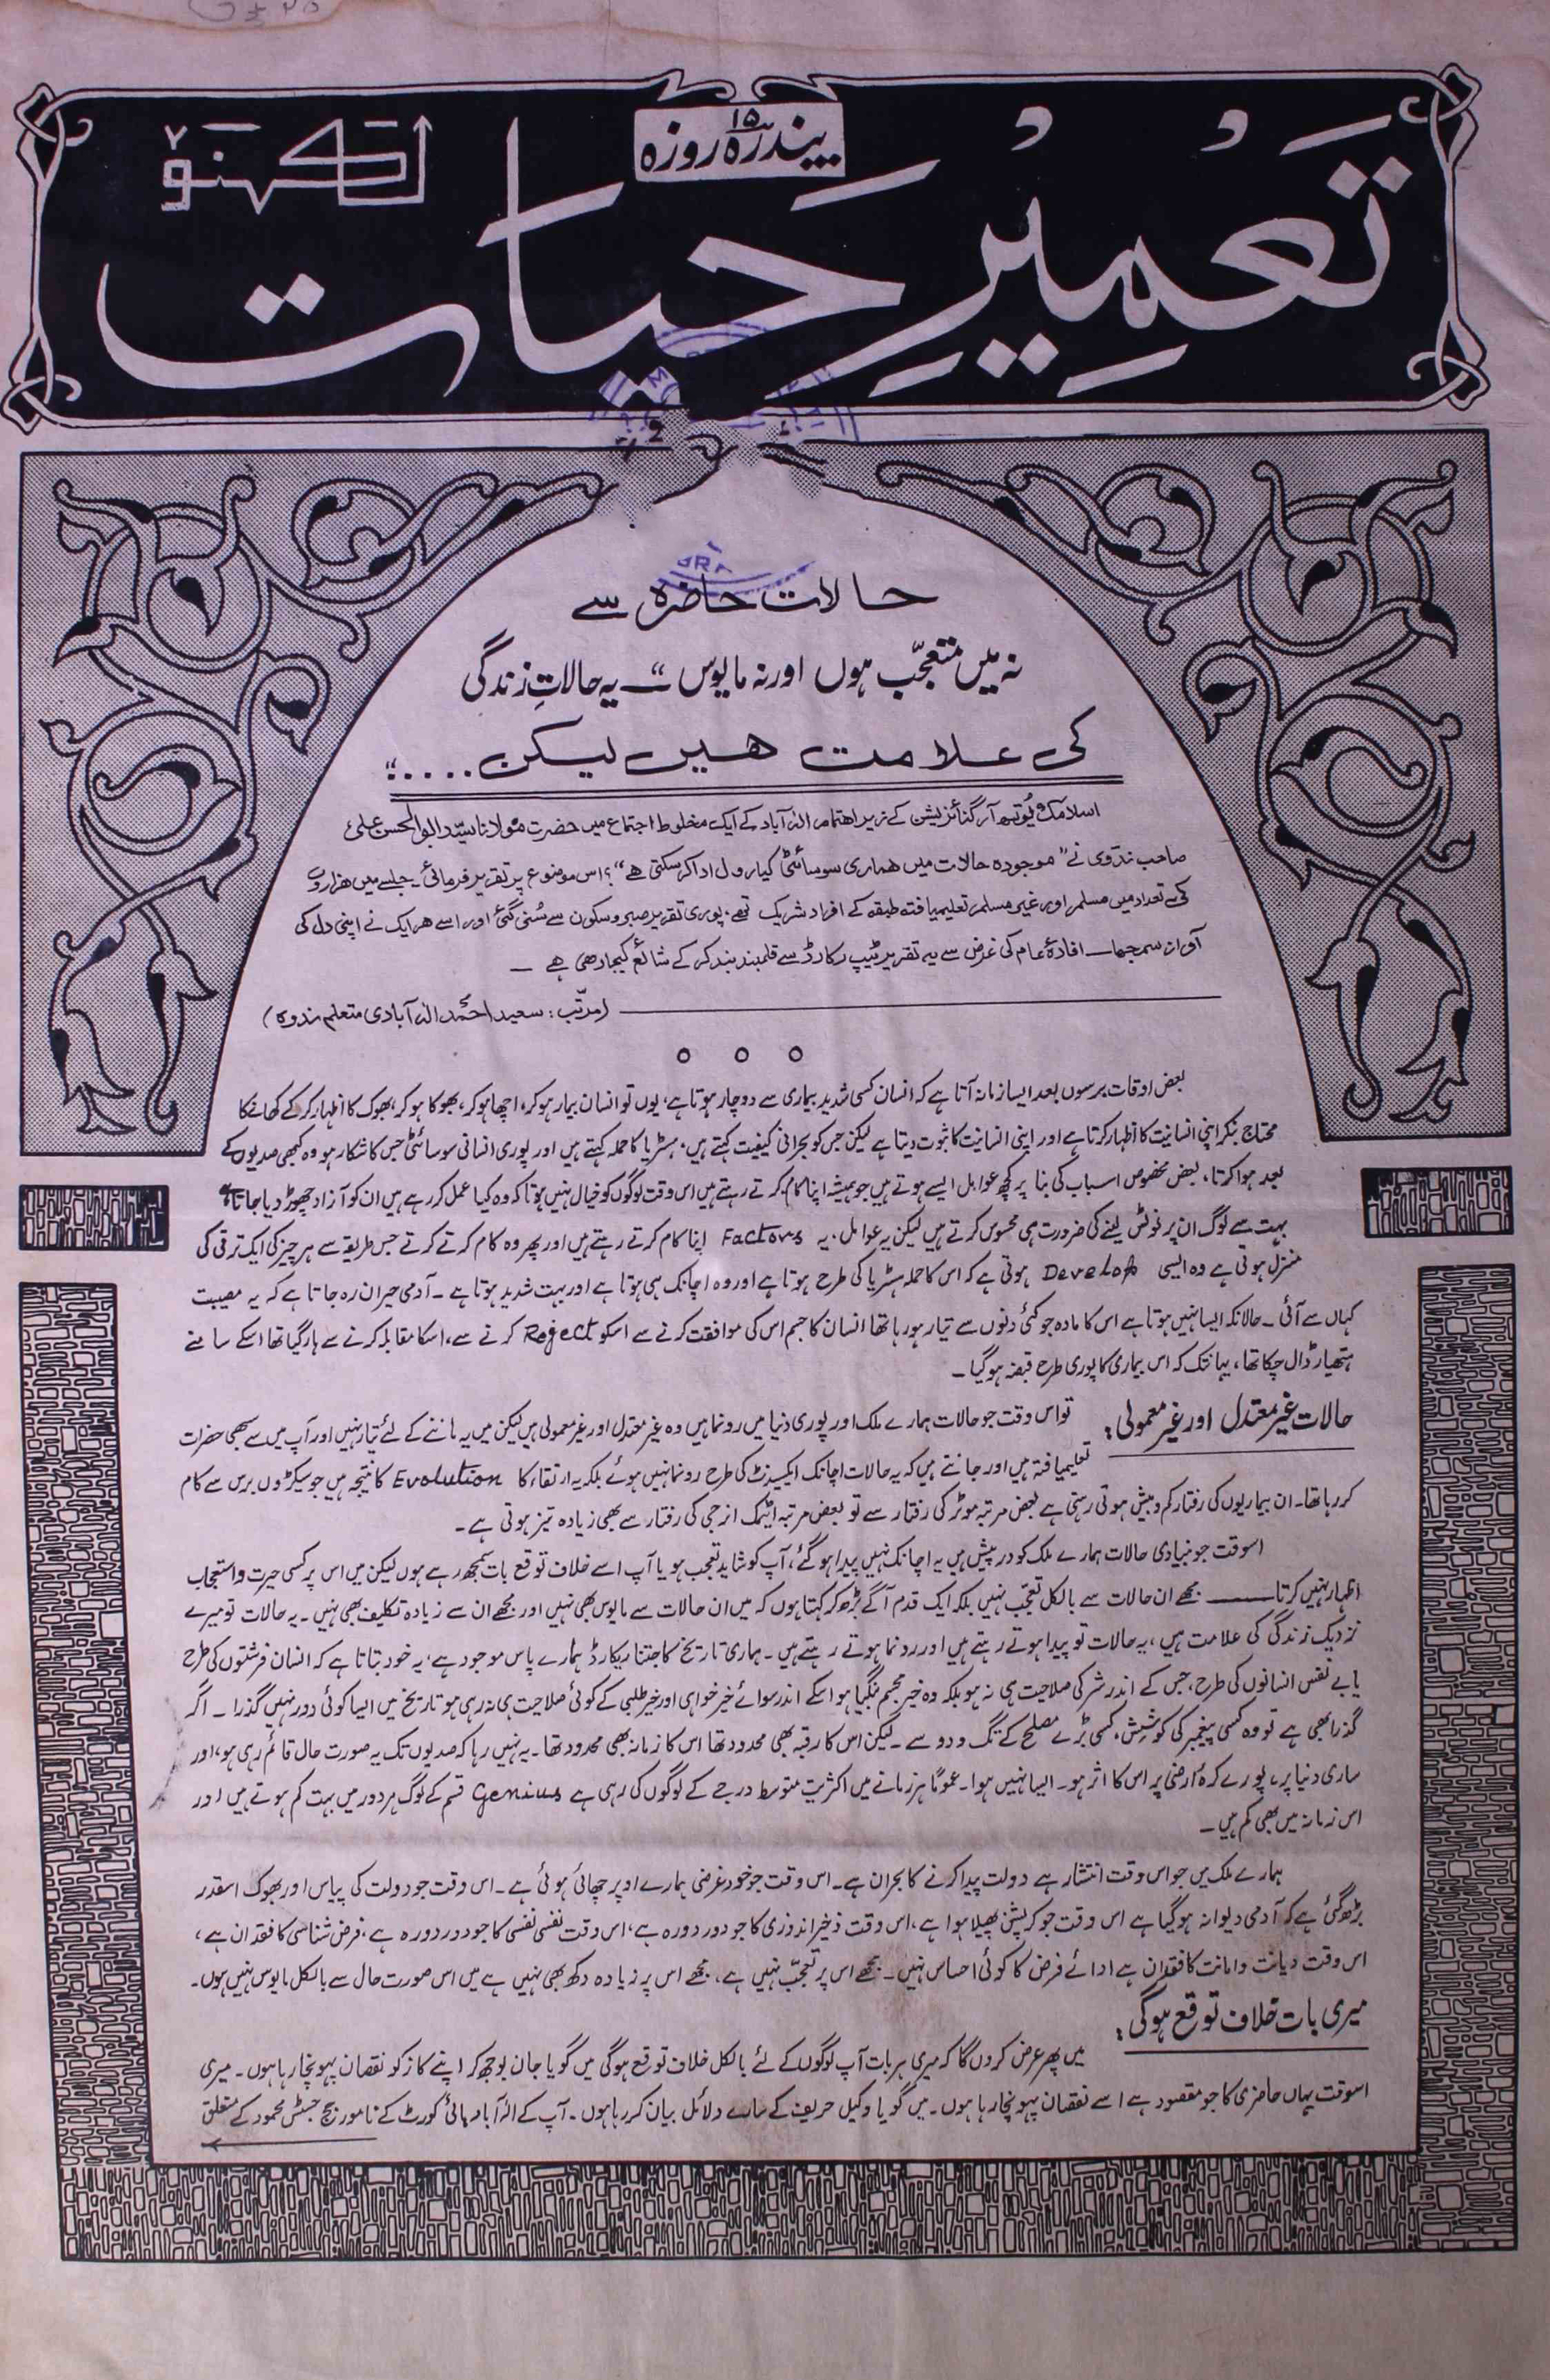 پندرہ ۱۵ روزہ
تعمیرِ حیات
لکھنؤ
حالات حاضرہ سے
نہ میں متعجّب ہوں اور نہ مایوس “ــ یہ حالاتِ زندگی
کی علامت ھیں لیکن ....“
اسلامک یُوتھ آرگنائزیشن کے زیر اھتمام الٰہ آباد کے ایک مخلوط اجتماع میں حضرت مولانا سیّد ابوالحسن علی
صاحب ندوی نے ”موجودہ حالات میں ھماری سوسائٹی کیا رول ادا کرسکتی ھے“؟ اس موضوع پر تقریر فرمائی۔ جلسے میں ھزاروں
کی تعداد میں مسلم اور غیر مسلم تعلیمیافتہ طبقہ کے افراد شریک تھے، پوری تقریر صبر و سکون سے سُنی گئی اور اسے ھر ایک نے اپنی دل کی
آواز سمجھا ــ افادۂ عام کی غرض سے یہ تقریر ٹیپ رکارڈ سے قلمبند بند کر کے شائع کیجا رھی ھے ــ
(مرتّب: سعید احمد الٰہ آبادی متعلم ندوہ)
بعض اوقات برسوں بعد ایسا زمانہ آتا ہے کہ انسان کسی شدید بیماری سے دوچار ہوتا ہے، یوں تو انسان بیمار ہوکر، اچھا ہوکر، بھوکا ہوکر، بھوک کا اظہار کر کے کھانے کا
محتاج بنکر اپنی انسانیت کا اظہار کرتا ہے اور اپنی انسانیت کا ثبوت دیتا ہے لیکن جس کو بحرانی کیفیت کہتے ہیں، ہسٹریا کا حملہ کہتے ہیں اور پوری انسانی سوسائٹی جس کا شکار ہو وہ کبھی صدیوں کے
بعد ہوا کرتا، بعض مخصوص اسباب کی بنا پر کچھ عوامل ایسے ہوتے ہیں جو ہمیشہ اپنا کام کرتے رہتے ہیں اس وقت لوگوں کو خیال نہیں ہوتا کہ وہ کیا عمل کر رہے ہیں ان کو آزاد چھوڑ دیا جاتا ہے
بہت سے لوگ ان پر نوٹس لینے کی ضرورت ہی محسوس کرتے ہیں لیکن یہ عوامل، یہ Factors اپنا کام کرتے رہتے ہیں اور پھر وہ کام کرتے کرتے جس طریقہ سے ہر چیز کی ایک ترقی کی
منزل ہوتی ہے وہ ایسی Develop ہوتی ہے کہ اس کا حملہ ہسٹریا کی طرح ہوتا ہے اور وہ اچانک ہی ہوتا ہے اور بہت شدید ہوتا ہے ــ آدمی حیران رہ جاتا ہے کہ یہ مصیبت
کہاں سے آئی ــ حالانکہ ایسا نہیں ہوتا ہے اس کا مادہ جو کئی دنوں سے تیار ہو رہا تھا انسان کا جسم اس کی موافقت کرنے سے اسکو Reject کرنے سے، اسکا مقابلہ کرنے سے ہار گیا تھا اسکے سامنے
ہتھیار ڈال چکا تھا، یہانتک کہ اس بیماری کا پوری طرح قبضہ ہوگیا ــ
حالات غیر معتدل اور غیر معمولی:
تو اس وقت جو حالات ہمارے ملک اور پوری دنیا میں رونما ہیں وہ غیر معتدل اور غیر معمولی ہیں لیکن میں یہ ماننے کے لئے تیار نہیں اور آپ میں سے سبھی حضرات
تعلیمیافتہ ہیں اور جانتے ہیں کہ یہ حالات اچانک ایکسیڈنٹ کی طرح رونما نہیں ہوئے بلکہ یہ ارتقاء کا Evolution کا نتیجہ ہیں جو سیکڑوں برس سے کام
کر رہا تھا۔ ان بیماریوں کی رفتار کم و بیش ہوتی رہتی ہے بعض مرتبہ موٹر کی رفتار سے تو بعض مرتبہ ایٹمک انرجی کی رفتار سے بھی زیادہ تیز ہوتی ہے ــ
اسوقت جو بنیادی حالات ہمارے ملک کو درپیش ہیں یہ اچانک نہیں پیدا ہوگئے، آپ کو شاید تعجب ہو یا آپ اسے خلاف توقع بات سمجھ رہے ہوں لیکن میں اس پر کسی حیرت و استعجاب
اظہار نہیں کرتا ــــ مجھے ان حالات سے بالکل تعجّب نہیں بلکہ ایک قدم آگے بڑھ کر کہتا ہوں کہ میں ان حالات سے مایوس بھی نہیں اور مجھے ان سے زیادہ تکلیف بھی نہیں ۔ یہ حالات تو میرے
نزدیک زندگی کی علامت ہیں، یہ حالات تو پیدا ہوتے رہتے ہیں اور رونما ہوتے رہتے ہیں ۔ ہماری تاریخ کا جتنا ریکارڈ ہمارے پاس موجود ہے، یہ خود بتاتا ہے کہ انسان فرشتوں کی طرح
یا بے نفس انسانوں کی طرح، جس کے اندر شر کی صلاحیت ہی نہ ہو بلکہ وہ خیر مجسم بنگیا ہو اسکے اندر سوائے خیر خواہی اور خیر طلبی کے کوئی صلاحیت ہی نہ رہی ہو تاریخ میں ایسا کوئی دور نہیں گذرا ۔ اگر
گذرا بھی ہے تو وہ کسی پیغمبر کی کوشش، کسی بڑے مصلح کے تگ و دو سے ــ لیکن اس کا رقبہ بھی محدود تھا اس کا زمانہ بھی محدود تھا ۔ یہ نہیں رہا کہ صدیوں تک یہ صورت حال قائم رہی ہو، اور
ساری دنیا پر، پورے کرۂ ارضی پر اس کا اثر ہو ۔ ایسا نہیں ہوا ۔ عموماً ہر زمانے میں اکثریت متوسط درجے کے لوگوں کی رہی ہے Genius قسم کے لوگ ہر دور میں بہت کم ہوتے ہیں اور
اس زمانہ میں بھی کم ہیں ــ
ہمارے ملک میں جو اس وقت انتشار ہے دولت پیدا کرنے کا بحران ہے ۔ اس وقت جو خود غرضی ہمارے اوپر چھائی ہوئی ہے ۔ اس وقت جو دولت کی پیاس اور بھوک اسقدر
بڑھ گئی ہے کہ آدمی دیوانہ ہوگیا ہے اس وقت جو کرپشن پھیلا ہوا ہے، اس وقت ذخیرہ اندوزی کا جو دور دورہ ہے، اس وقت نفسی نفسی کا جو دور دورہ ہے، فرض شناسی کا فقدان ہے،
اس وقت دیانت و امانت کا فقدان ہے ادائے فرض کا کوئی احساس نہیں ــ مجھے اس پر تعجّب نہیں ہے، مجھے اس پر زیادہ دکھ بھی نہیں ہے میں اس صورت حال سے بالکل مایوس نہیں ہوں۔
میری بات خلاف توقع ہوگی:
میں پھر عرض کروں گا کہ میری ہر بات آپ لوگوں کے لئے بالکل خلاف توقع ہوگی میں گویا جان بوجھ کر اپنے کاز کو نقصان پہونچا رہا ہوں ۔ میری
اسوقت یہاں حاضری کا جو مقصود ہے اسے نقصان پہونچا رہا ہوں ۔ میں گویا وکیل حریف کے سارے دلائل بیان کر رہا ہوں ۔ آپ کے الٰہ آباد ہائی کورٹ کے نامور جج جسٹس محمود کے متعلق